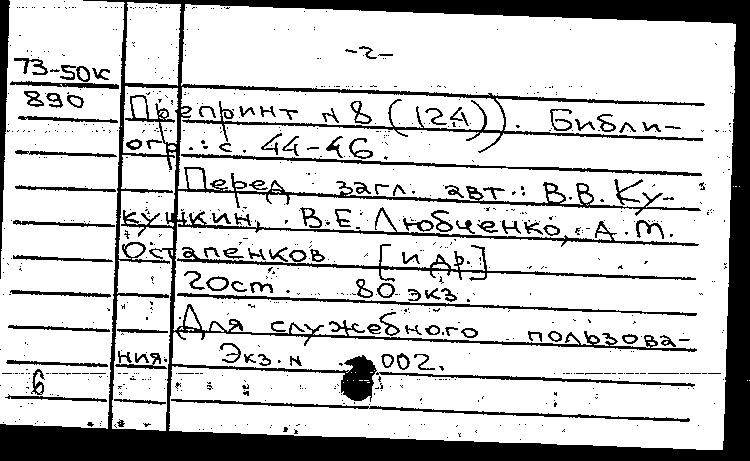 -2-
73-50к
890
Препринт N 8 (124)). Библи-
огр.: с. 44-46.
Перед загл. авт.: В.В. Ку-
кушкин, В.Е. Любченко, А.М.
Остапенков [и др.]
20ст. 80 экз.
Для служебного пользова-
ния. Экз. N 002.
6